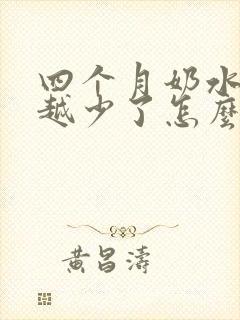 四个月奶水
越少了怎麼
黄昌濤